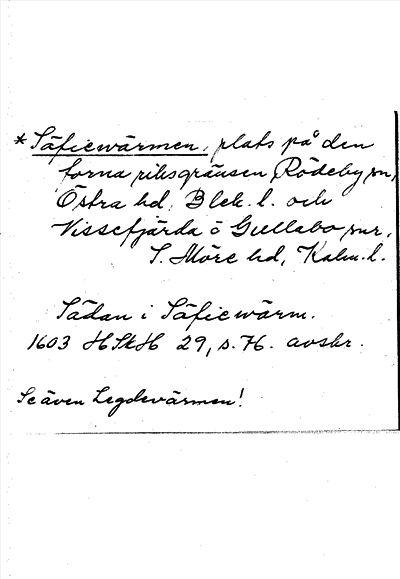 * Säfiewärmen, plats på den
forna riksgränsen, Rödeby sn,
Östra hd, Blek. l. och
Vissefjärda o Gullabo snr,
S. Möre hd, Kalm. l.
Sädan i Säfiewärm.
1603 HSkH 29, s. 76. avskr.
Se även Legdewärmen!